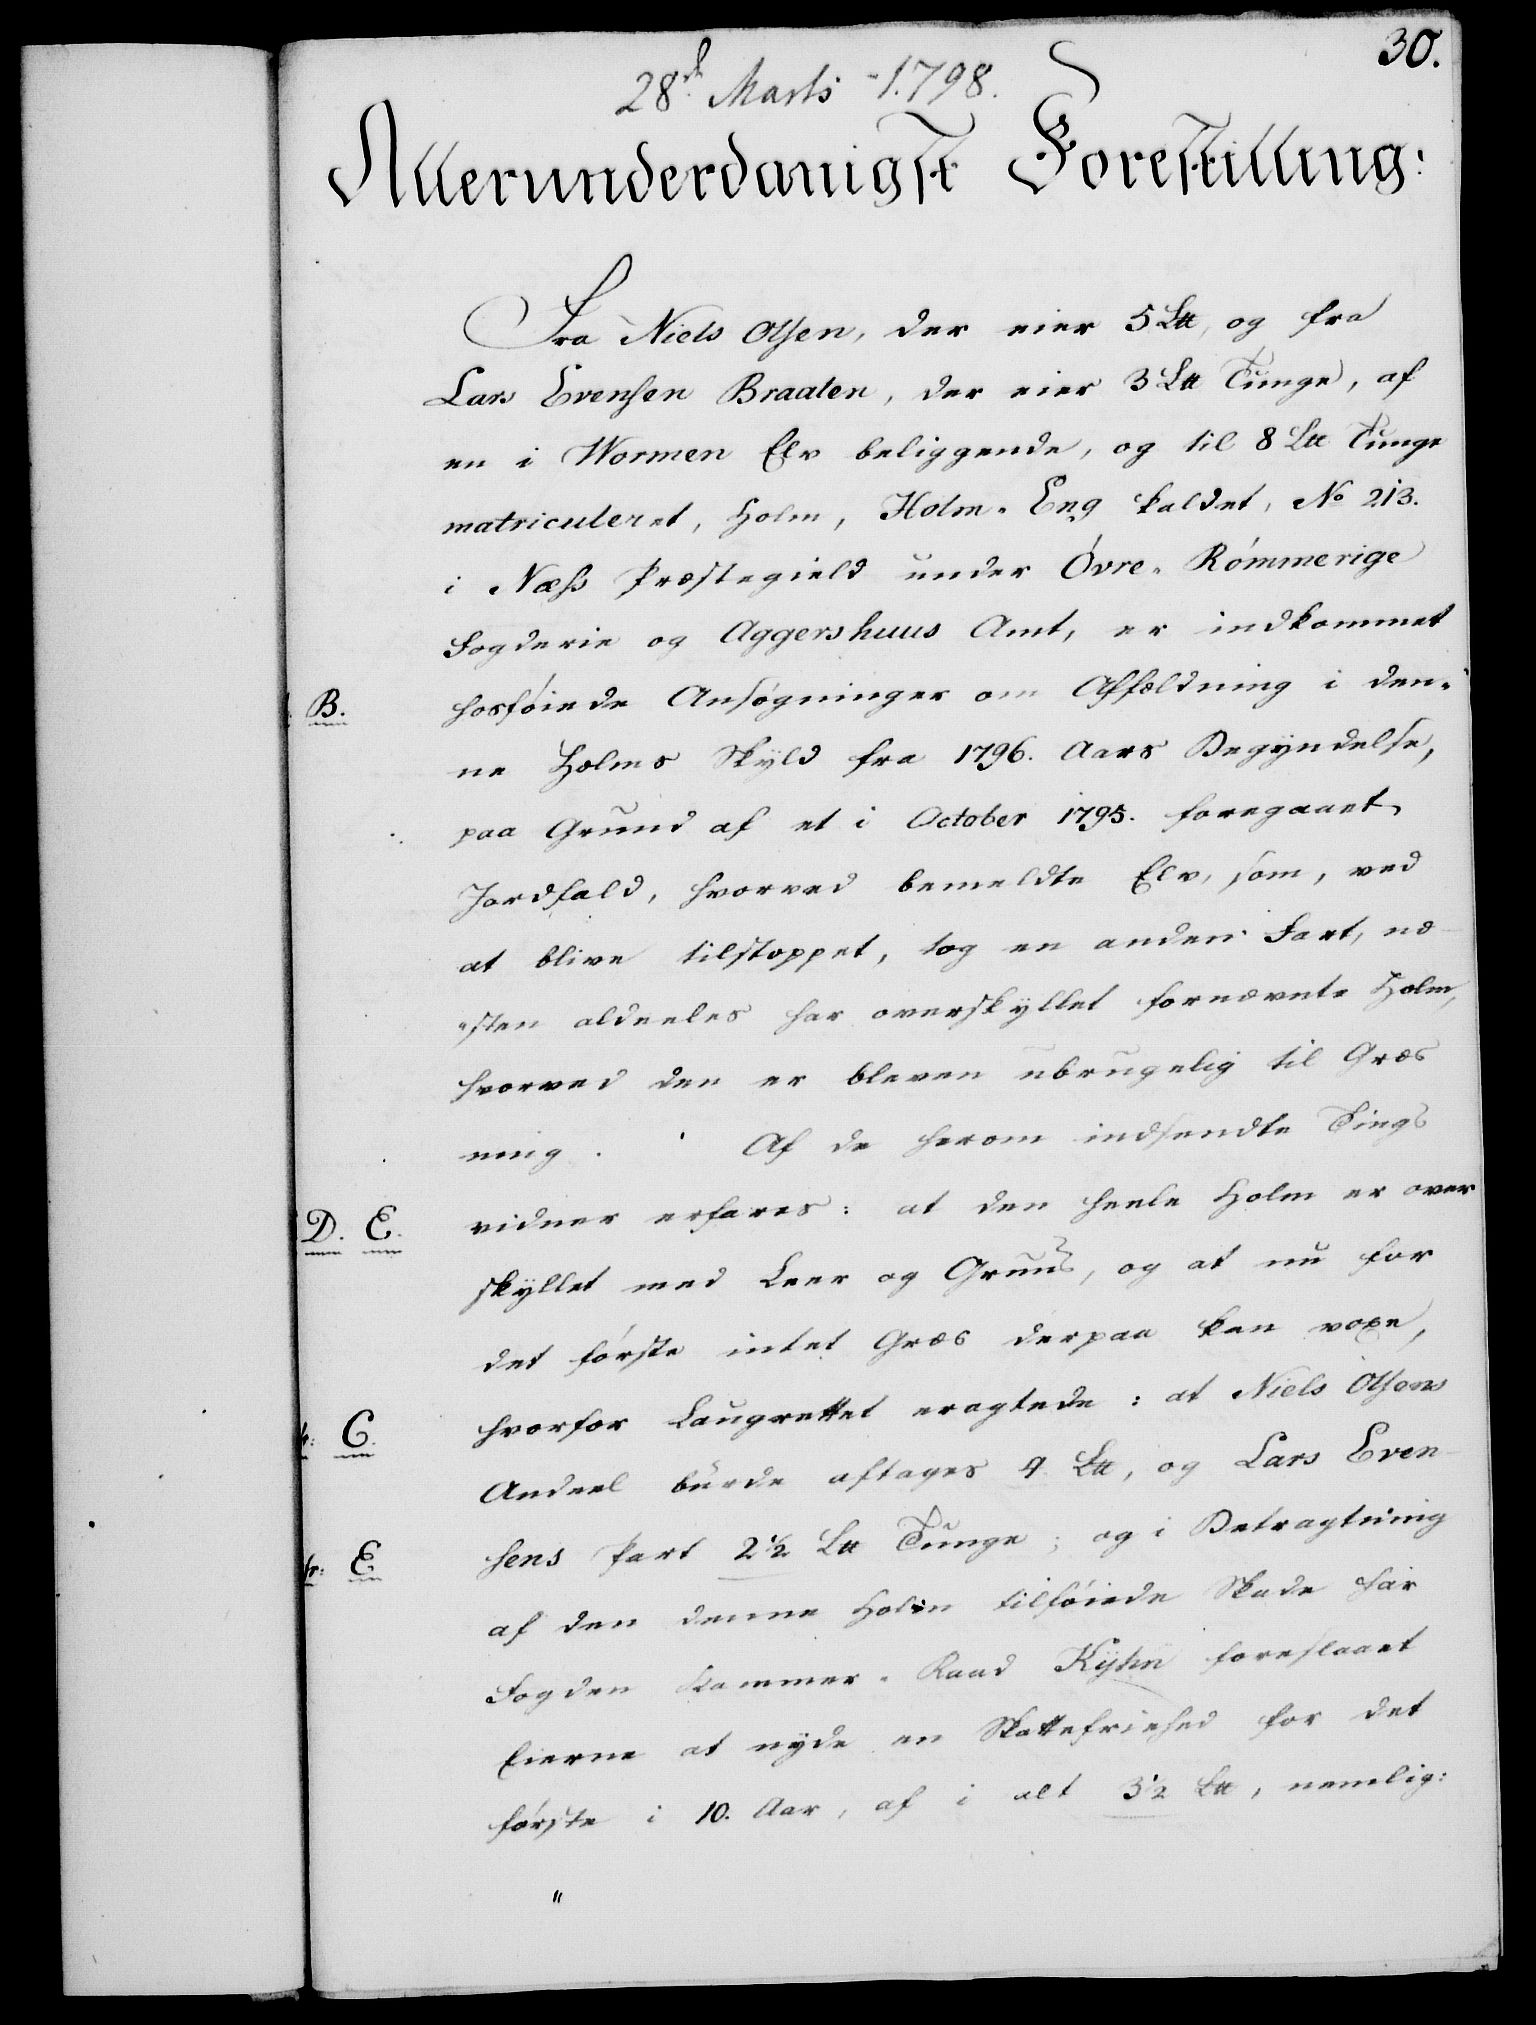 30.
28de Marts 1798.
Allerunderdanigst Forestilling:
Fra Niels Olsen, der eier 5 L℔, og fra
Lars Evensen Braaten, der eier 3 L℔ Tunge, af
en i Wormen Elv beliggende, og til 8 L℔ Tunge
matriculeret, Holm, Holm-Eng kaldet, No 213.
i Næss Præstegield under Óvre-Rómmerige
Fogderie og Aggershuus Amt, er indkommet
B. hosfóiede Ansøgninger om Affældning i den-
ne Holms Skyld fra 1796. Aars Begyndelse,
paa Grund af et i October 1795. foregaaet
Jordfald, hvorved bemeldte Elv, som, ved
at blive tilstoppet, tog en anden Fart, næ-
sten aldeeles har overskyllet fornævnte Holm,
hvorved den er bleven ubrugelig til Græs
ning. Af de herom indsendte Tings
D. E. vidner erfares: at den heele Holm er over
skyllet med Leer og Gruus, og at nu for
det fórste intet Græs derpaa kan voxe,
C. hvorfor Laugrettet eragtede: at Niels Olsens
Andeel burde aftages 4 L℔, og Lars Even-
E. sens Part 2½ L℔ Tunge; og i Betragtning
af den denne Holm tilfóiede Skade har
Fogden Kammer-Raad Kyhn foreslaaet
Eierne at nyde en Skattefriehed for det
fórste i 10. Aar, af i alt 3½ L℔, nemlig:
"